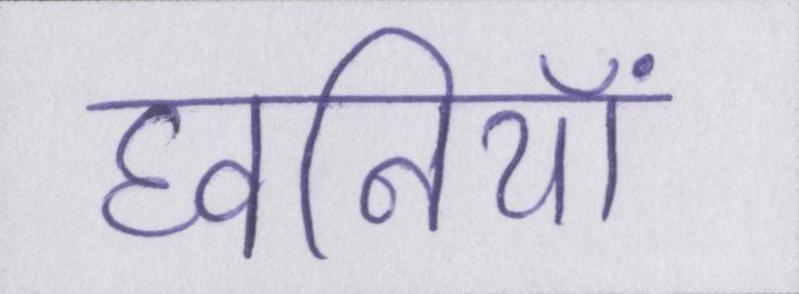 ध्वनियाँ